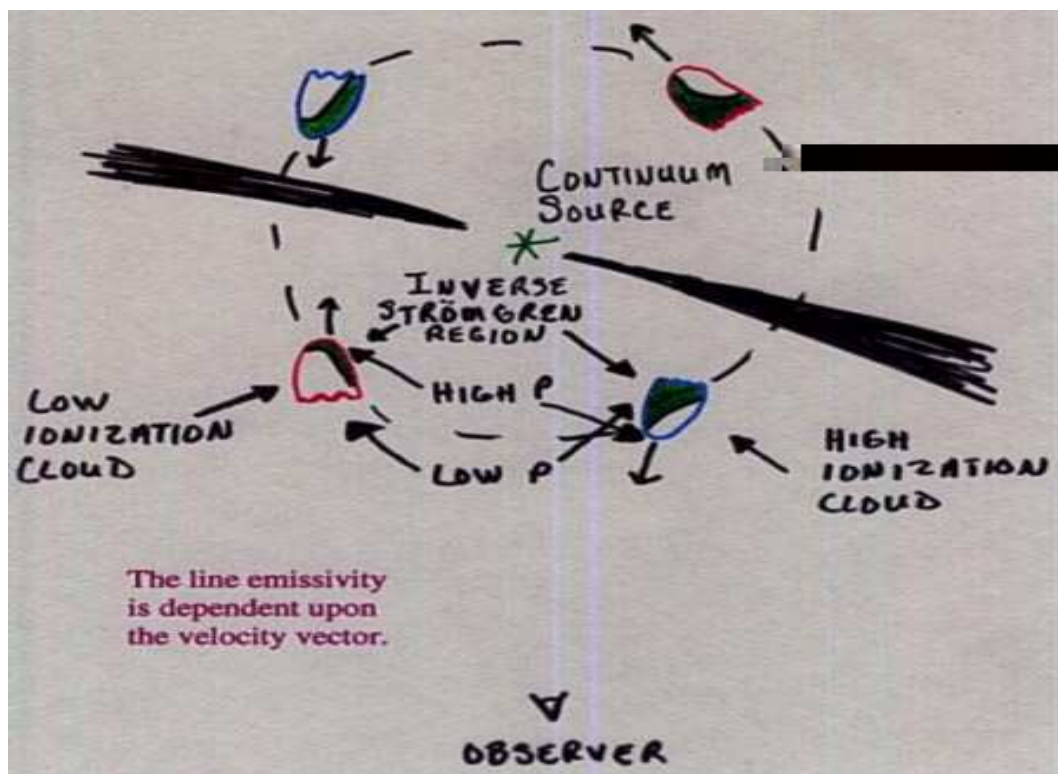 CONTINUUM
SOURCE
INVERSE
STRÖMGREN
REGION
HIGH P
LOW P
LOW
IONIZATION
CLOUD
HIGH
IONIZATION
CLOUD
The line emissivity
is dependent upon
the velocity vector.
OBSERVER